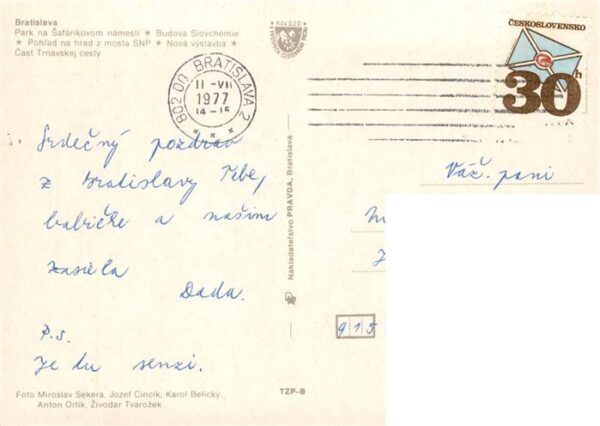 Bratislava
Park na Šafárikovom námestí ★ Budova Slovchemie
★ Pohľad na hrad z mosta SNP ★ Nová výstavba ★
Časť Trnavskej cesty
802 00 BRATISLAVA 2
11 -VII
1977
14-15
ČESKOSLOVENSKO
30h
Srdečný pozdrav
z Bratislavy Tebe,
babičke a našim
zasiela
Dada.
P.S.
Je tu senzi.
Váž. pani
915
Nakladateľstvo PRAVDA, Bratislava
Foto Miroslav Sekera, Jozef Cincík, Karol Belický,
Anton Orlík, Živodar Tvarožek.
TZP-B